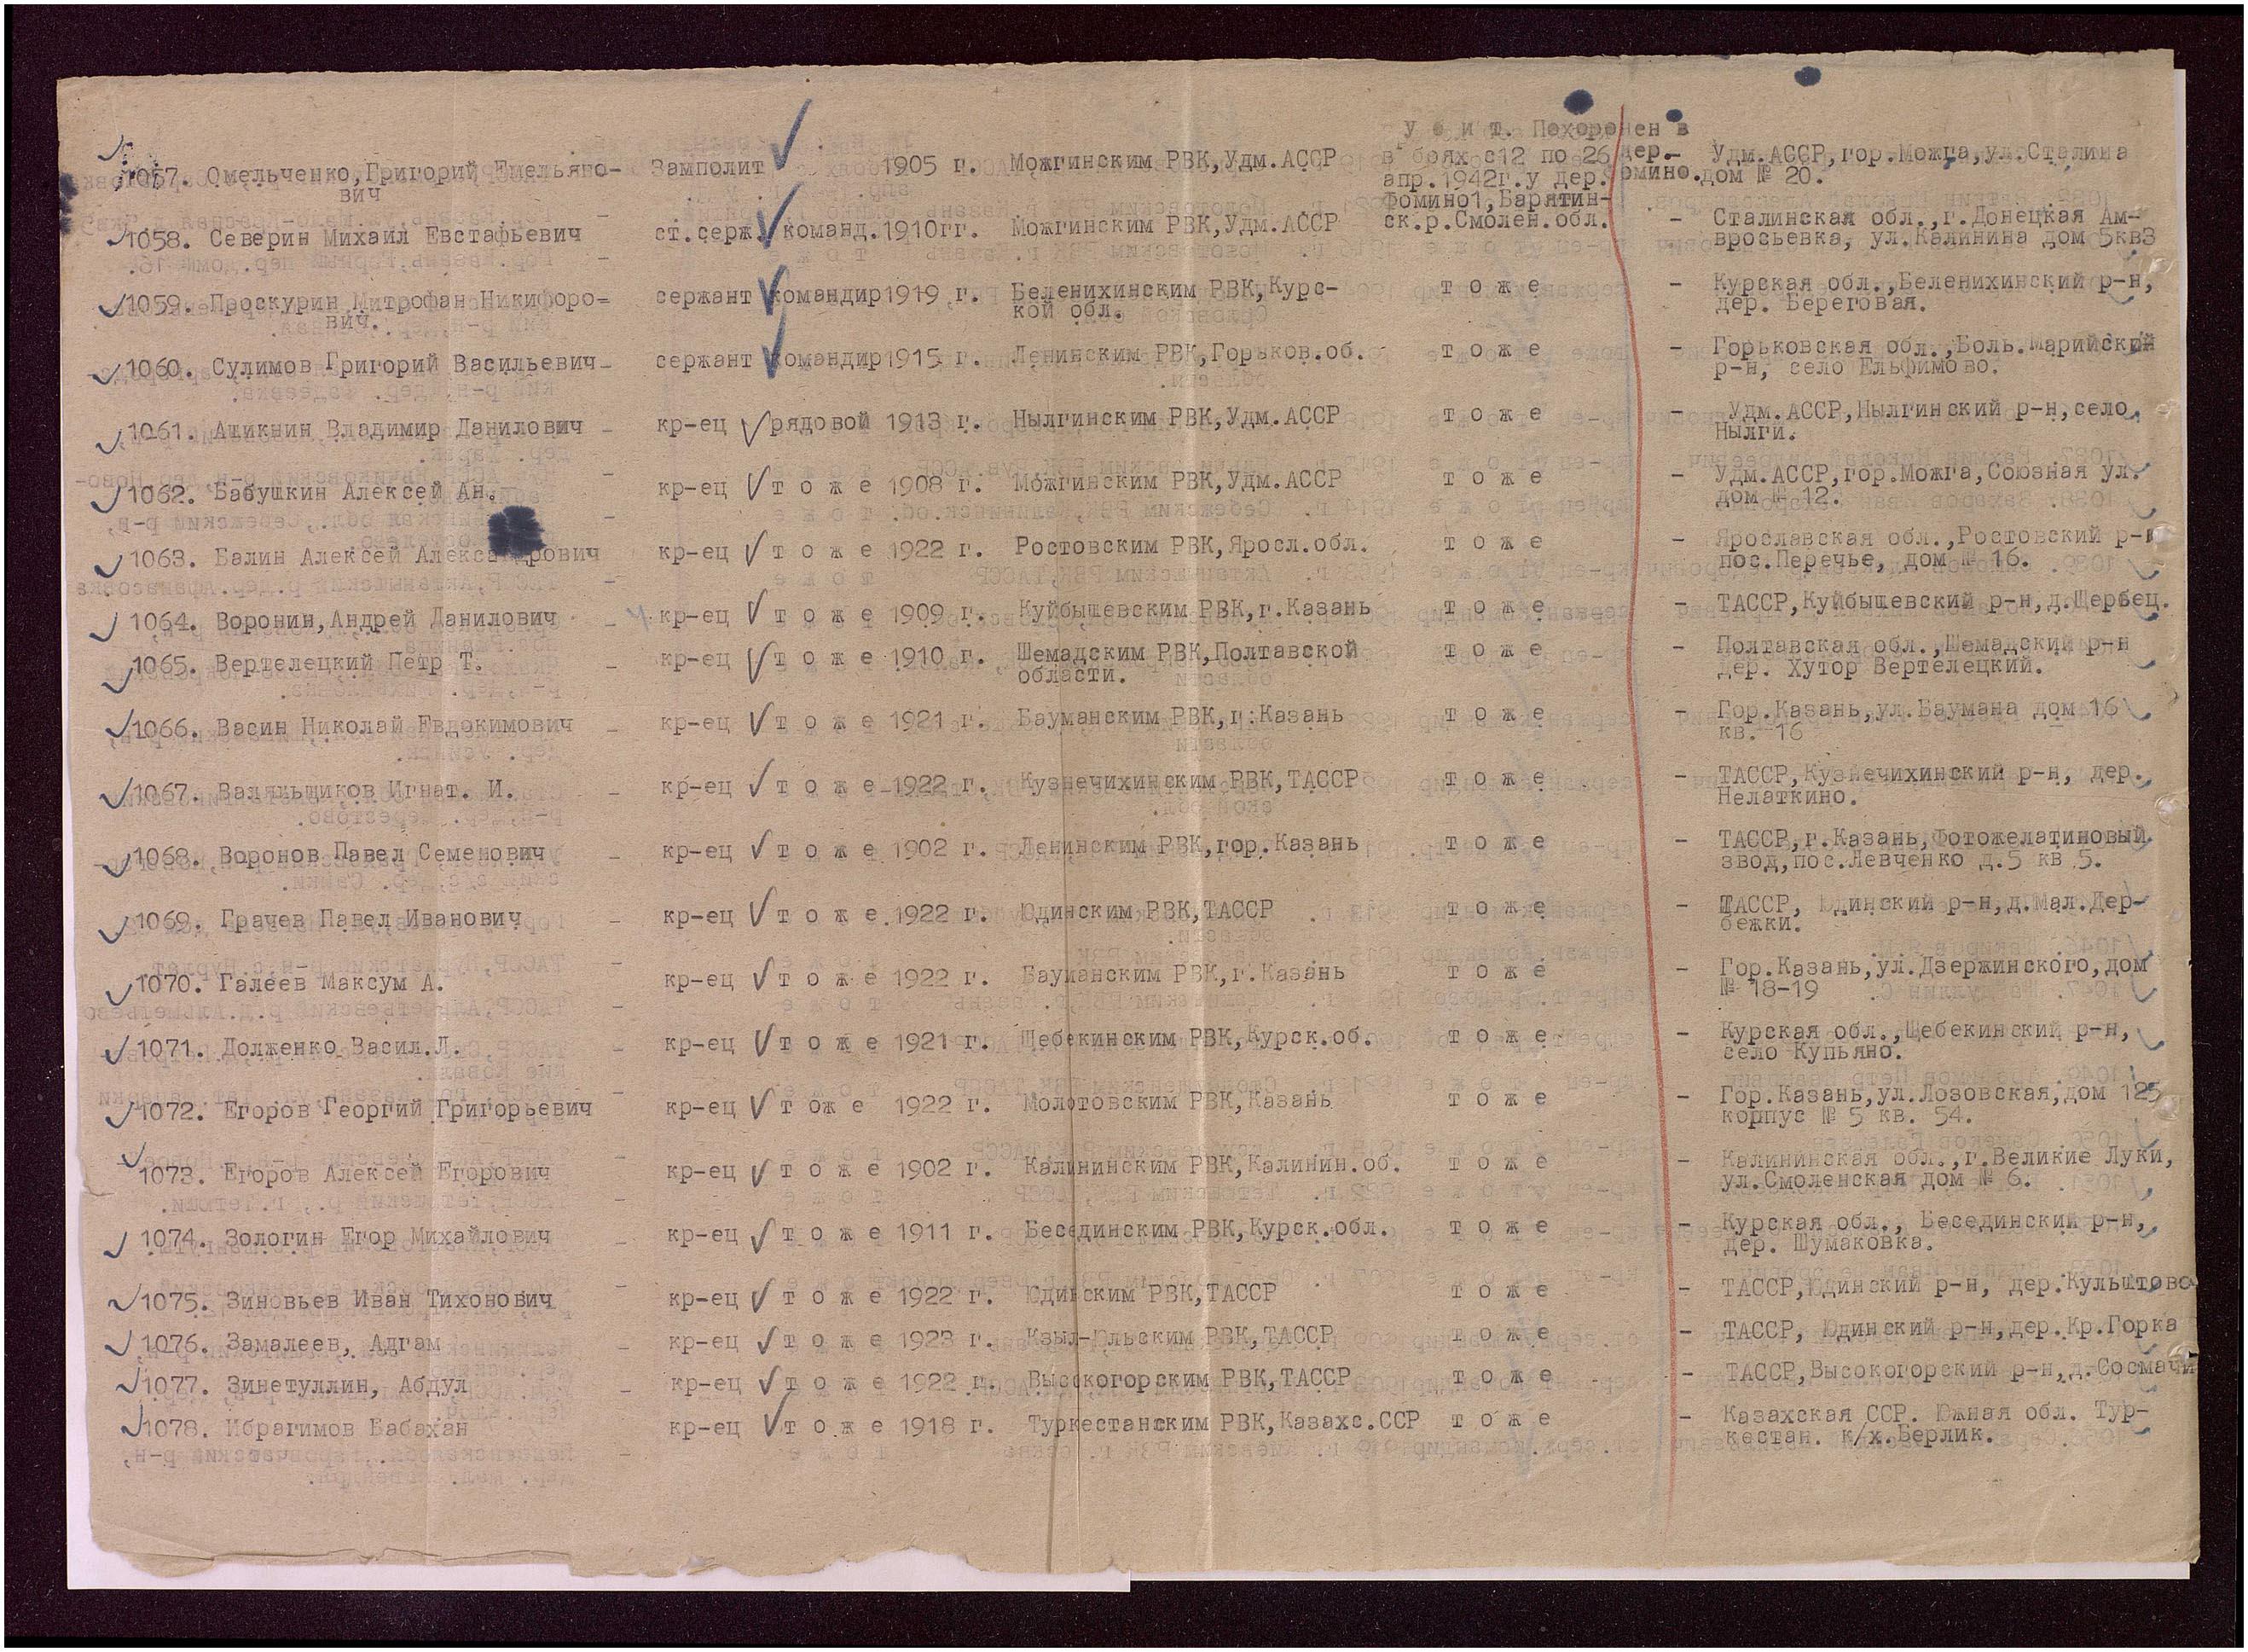 У б и т. Похоронен в
1057. Омельченко,Григорий Емельяно- Замполит 1905 г. Можгинским РВК,Удм.АССР в боях с12 по 26 дер.- Удм.АССР,гор.Можга,ул.Сталина
вич апр.1942г.у дер. Фомино.дом № 20.
Фомино1,Барятин-
1058. Северин Михаил Евстафьевич ст.серж. команд.1910гг. Можгинским РВК,Удм.АССР ск.р.Смолен.обл. - Сталинская обл.,г.Донецкая Ам-
вросьевка, ул.Калинина дом 5кв3
1059. Проскурин Митрофан Никифоро- сержант командир1919 г. Беленихинским РВК,Курс- т о ж е - Курская обл.,Беленихинский р-н,
вич. кой обл. дер. Береговая.
1060. Сулимов Григорий Васильевич- сержант командир1915 г. Ленинским РВК,Горьков.об. т о ж е - Горьковская обл.,Боль.Марийский
р-н, село Ельфимово.
1061. Атикнин Владимир Данилович - кр-ец рядовой 1913 г. Нылгинским РВК,Удм.АССР т о ж е - Удм.АССР,Нылгинский р-н,село
Нылги.
1062. Бабушкин Алексей Ан. - кр-ец т о ж е 1908 г. Можгинским РВК,Удм.АССР т о ж е - Удм.АССР,гор.Можга,Союзная ул.
дом № 12.
1063. Балин Алексей Александрович кр-ец т о ж е 1922 г. Ростовским РВК,Яросл.обл. т о ж е - Ярославская обл.,Ростовский р-н
пос.Перечье, дом № 16.
1064. Воронин,Андрей Данилович - кр-ец т о ж е 1909 г. Куйбышевским РВК,г.Казань т о ж е - ТАССР,Куйбышевский р-н,д.Щербец.
1065. Вертелецкий Петр Т. кр-ец т о ж е 1910 г. Шемадским РВК,Полтавской т о ж е - Полтавская обл.,Шемадский р-н
области. дер. Хутор Вертелецкий.
1066. Васин Николай Евдокимович - кр-ец т о ж е 1921 г. Бауманским РВК,г.Казань т о ж е - Гор.Казань,ул.Баумана дом 16
кв. 16
1067. Валяльщиков Игнат. И. - кр-ец т о ж е 1922 г. Кузнечихинским РВК,ТАССР т о ж е - ТАССР,Кузнечихинский р-н, дер.
Нелаткино.
1068. Воронов Павел Семенович - кр-ец т о ж е 1902 г. Ленинским РВК,гор.Казань т о ж е - ТАССР,г.Казань,Фотожелатиновый
звод,пос.Левченко д.5 кв 5.
1069. Грачев Павел Иванович - кр-ец т о ж е 1922 г. Юдинским РВК,ТАССР т о ж е - ТАССР, Юдинский р-н,д.Мал.Дер-
бежки.
1070. Галеев Максум А. - кр-ец т о ж е 1922 г. Бауманским РВК,г.Казань т о ж е - Гор.Казань,ул.Дзержинского,дом
№ 18-19
1071. Долженко Васил.Л. - кр-ец т о ж е 1921 г. Шебекинским РВК,Курск.об. т о ж е - Курская обл.,Шебекинский р-н,
село Купьяно.
1072. Егоров Георгий Григорьевич кр-ец т оже 1922 г. Молотовским РВК,Казань т о ж е - Гор.Казань,ул.Лозовская,дом 125
корпус № 5 кв. 54.
1073. Егоров Алексей Егорович - кр-ец т о ж е 1902 г. Калининским РВК,Калинин.об. т о ж е - Калининская обл.,г.Великие Луки,
ул.Смоленская дом № 6.
1074. Зологин Егор Михайлович - кр-ец т о ж е 1911 г. Бесединским РВК,Курск.обл. т о ж е - Курская обл., Бесединский р-н,
дер. Шумаковка.
1075. Зиновьев Иван Тихонович - кр-ец т о ж е 1922 г. Юдинским РВК,ТАССР т о ж е - ТАССР,Юдинский р-н, дер.Кульштово
1076. Замалеев, Адгам - кр-ец т о ж е 1923 г. Кзыл-Юльским РВК,ТАССР т о ж е - ТАССР, Юдинский р-н,дер.Кр.Горка
1077. Зинетуллин, Абдул - кр-ец т о ж е 1922 г. Высокогорским РВК,ТАССР т о ж е - ТАССР,Высокогорский р-н,д.Сосмачи
1078. Ибрагимов Бабахан кр-ец т о ж е 1918 г. Туркестанским РВК,Казахс.ССР т о ж е - Казахская ССР. Южная обл. Тур-
кестан. к/х.Берлик.